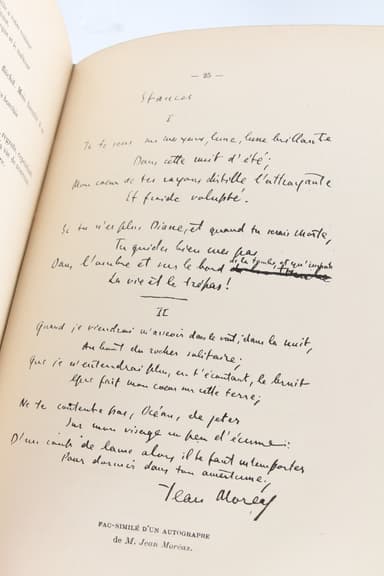 — 25 —
Stances
I
Tu sur mes yeux, lune, lune brillante
Dans cette nuit d'été;
Mon cœur de tes rayons distille l'attrayante
Et fluide volupté.
Si tu n'es plus Diane, et quand tu serais morte,
Tu guides bien mes pas
Dans l'ombre et sur le bord de la tombe, et qu'importe
La vie et le trépas!
II
Quand je viendrai m'asseoir dans le vent, dans la nuit,
Au bout du rocher solitaire.
Que je n'entendrai plus, en t'écoutant, le bruit
Que fait mon cœur sur cette terre,
Ne te contente pas, Océan, de jeter
Sur mon visage un peu d'écume:
D'un coup de lame alors il te faut m'emporter
Pour dormir dans ton amertume.
Jean Moréas
FAC-SIMILÉ D'UN AUTOGRAPHE
de M. Jean Moréas.